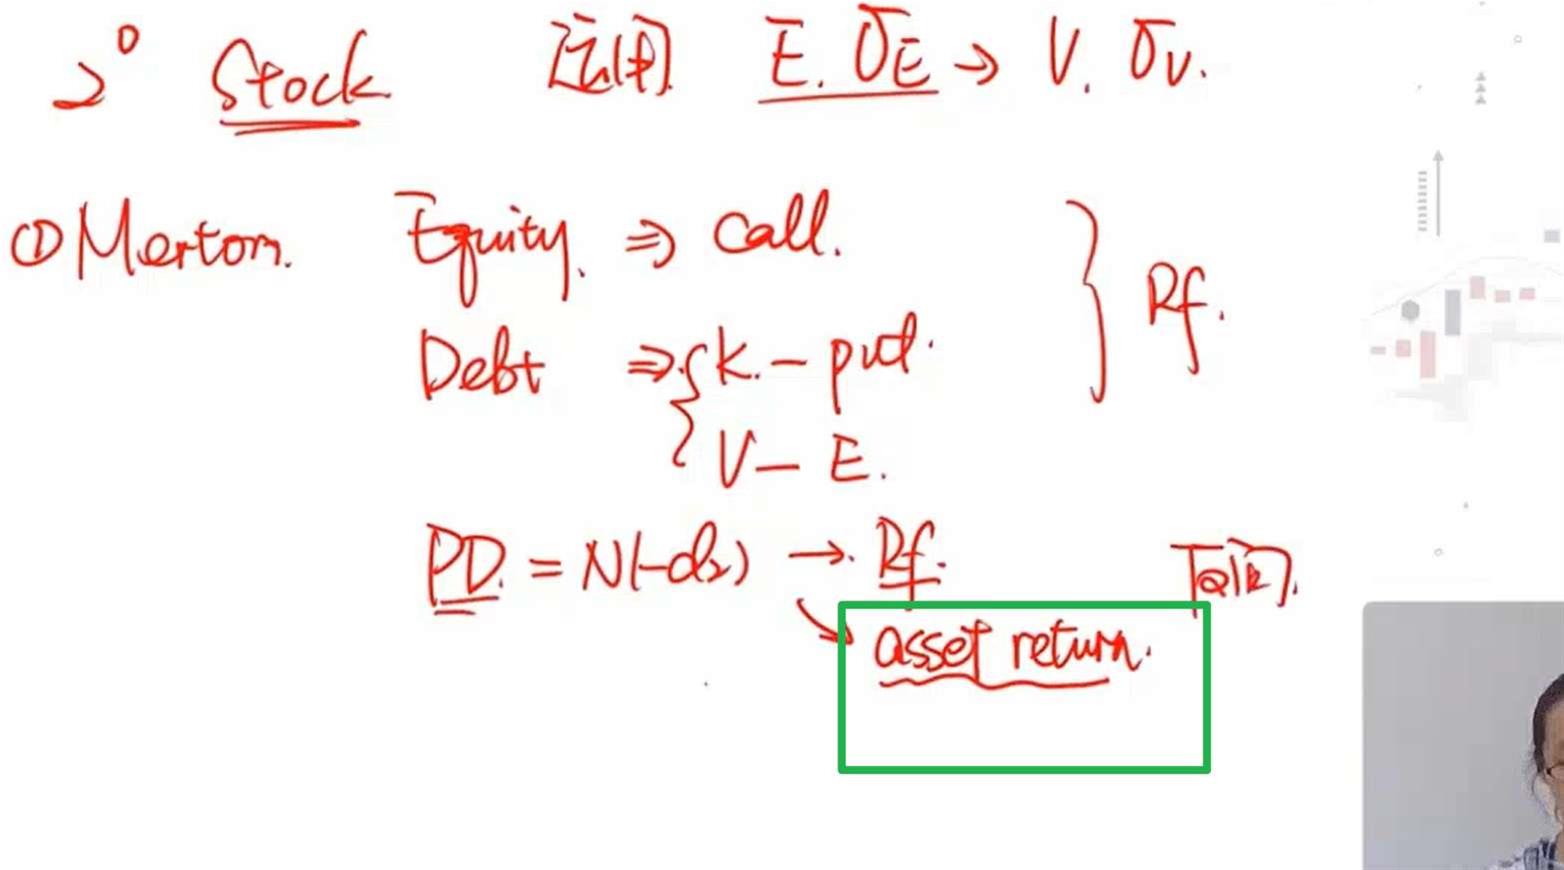 2° Stock 运用 E. σE → V. σV.
① Merton. Equity. ⇒ Call.
Debt ⇒ { K. - put.
V - E.
} Rf.
PD. = N(-d2) → Rf.
↘ asset return.